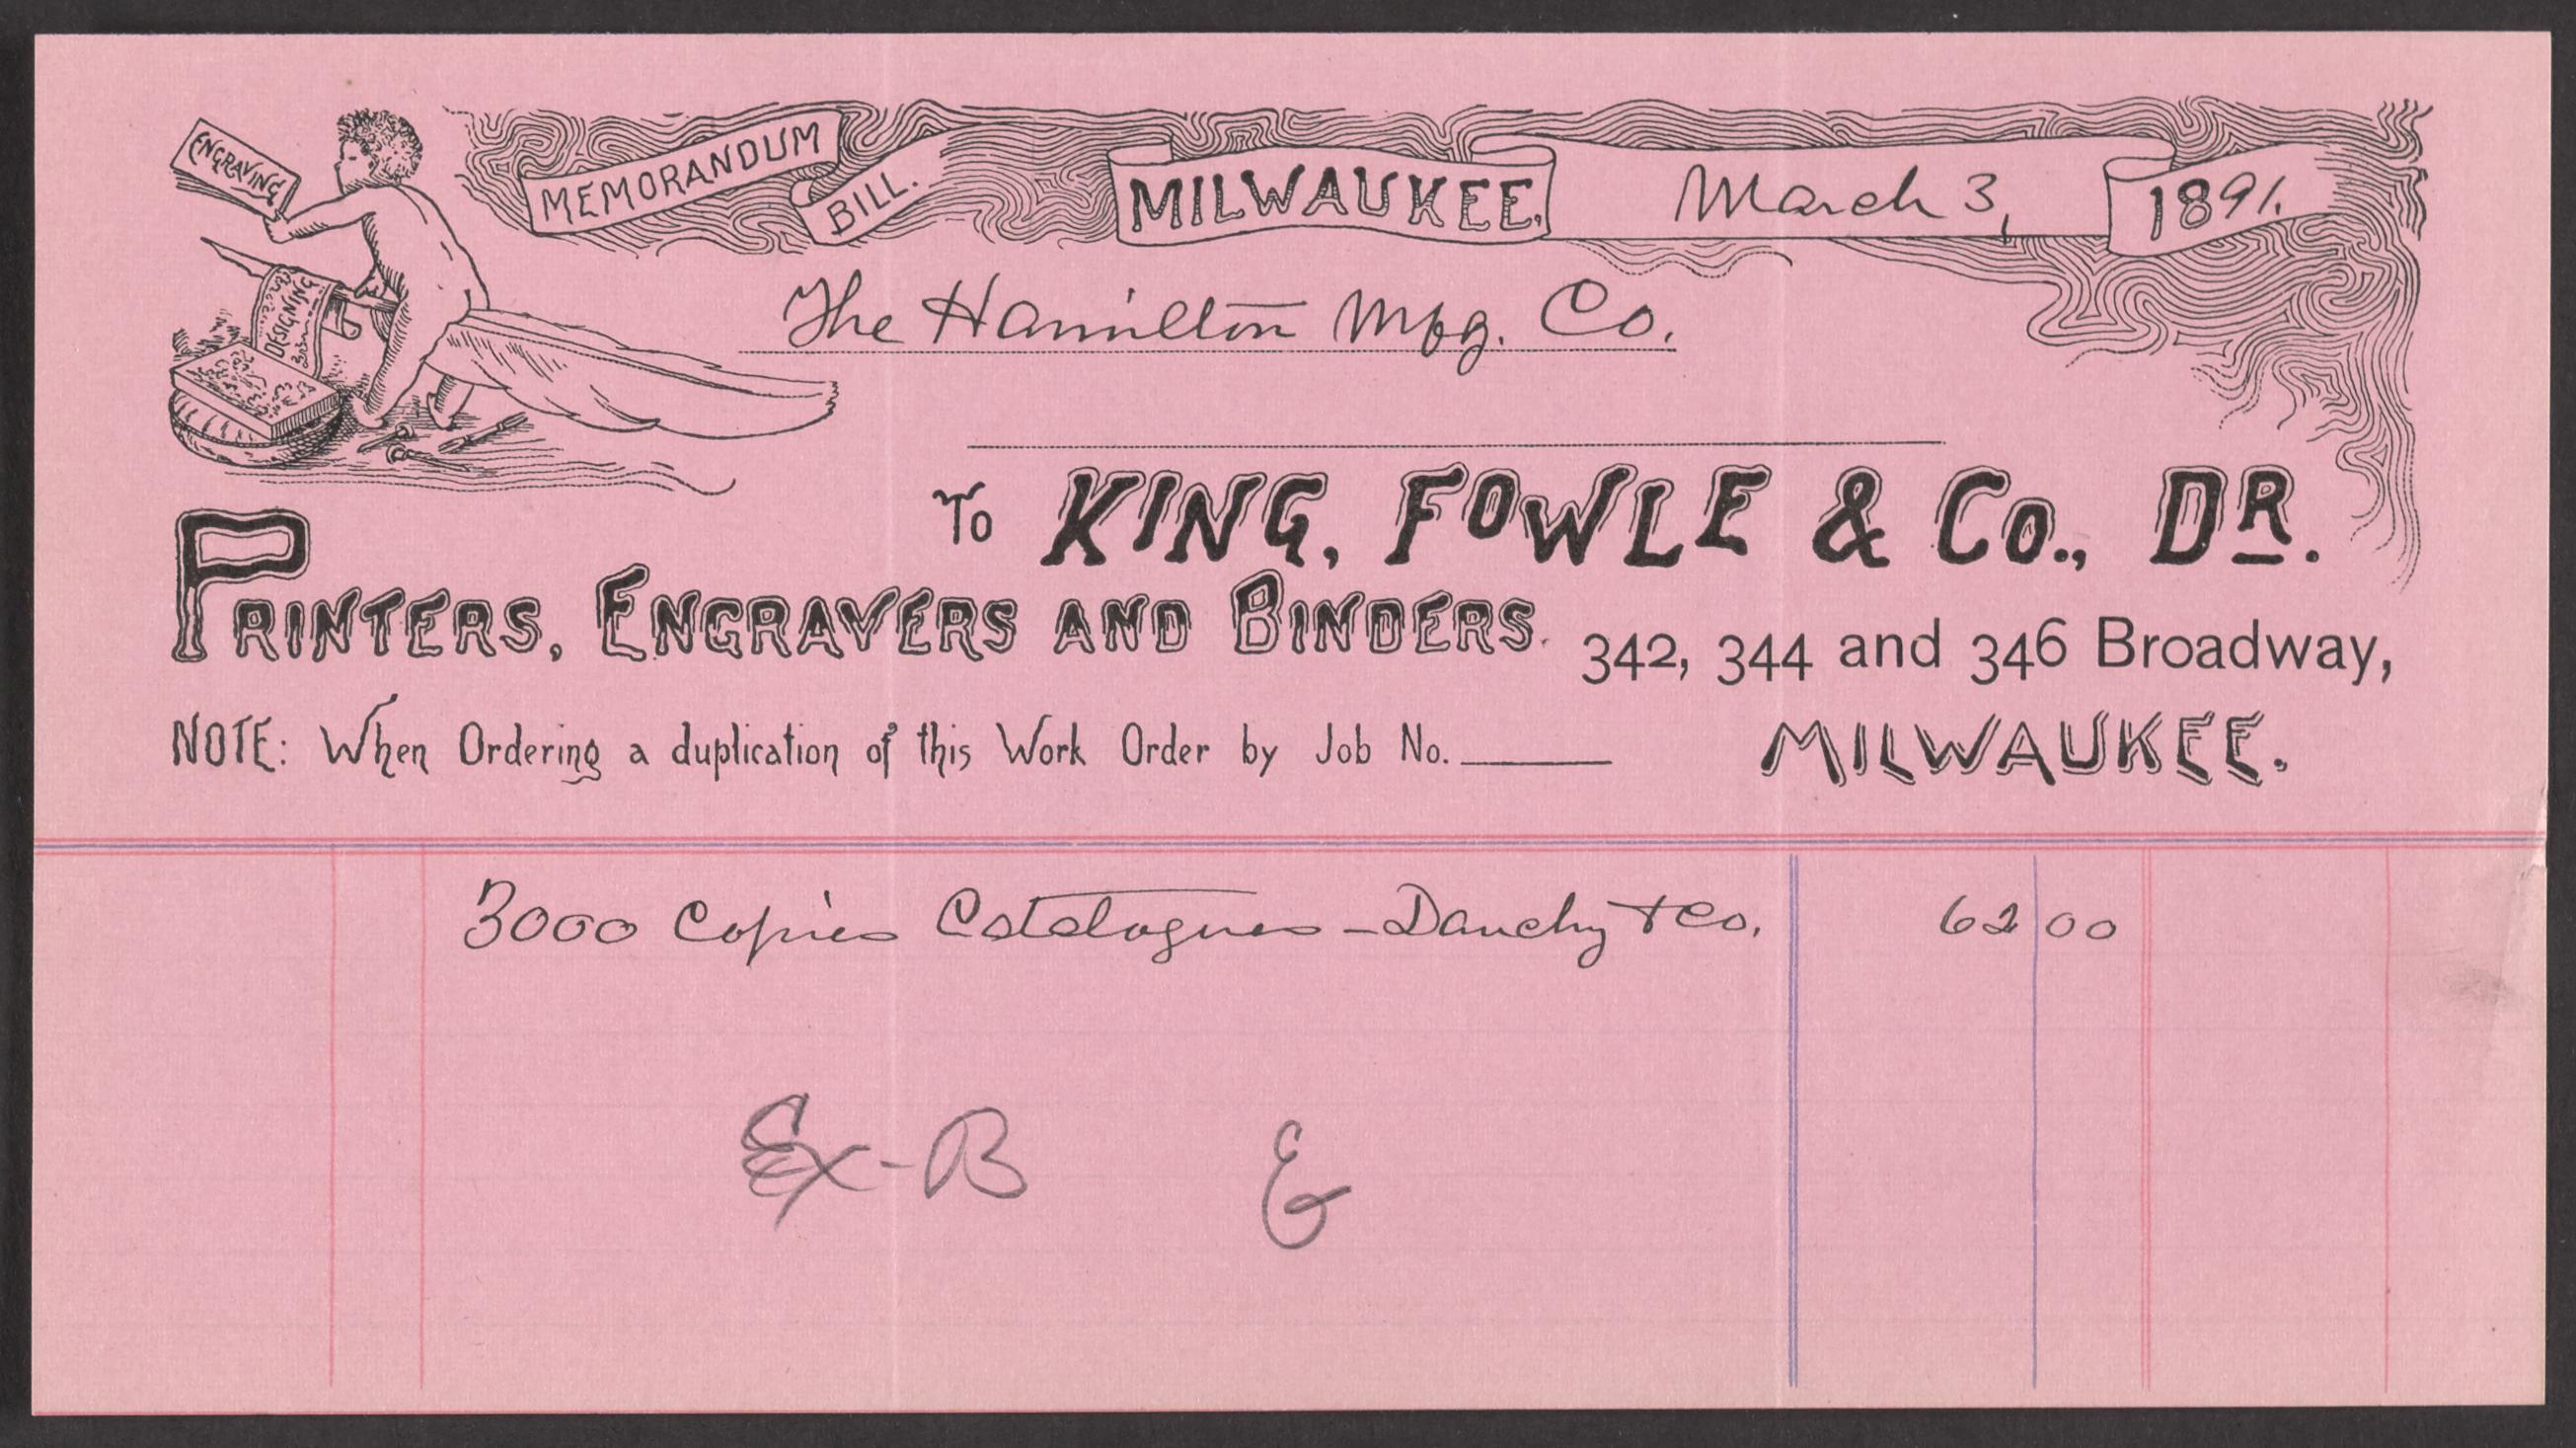 ENGRAVING
DESIGNING
MEMORANDUM BILL.
MILWAUKEE, March 3, 1891.
The Hamilton Mfg. Co.
To KING, FOWLE & Co., DR.
PRINTERS, ENGRAVERS AND BINDERS. 342, 344 and 346 Broadway,
NOTE: When Ordering a duplication of this Work Order by Job No. MILWAUKEE.
3000 Copies Catalogues - Dauchy & Co. 62 00
Ex-B &